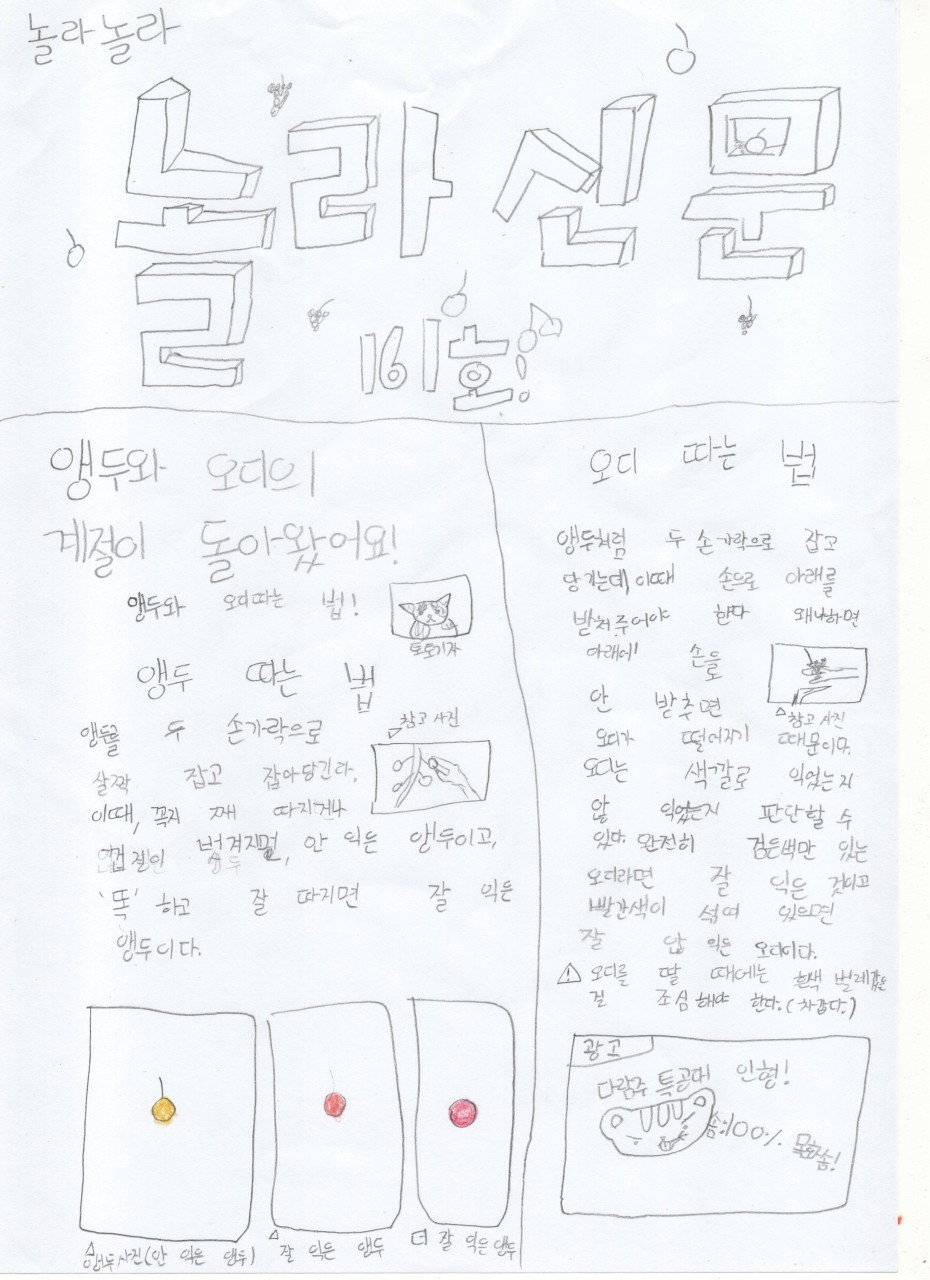 놀라놀라
놀라신문
161호!
앵두와 오디의
계절이 돌아왔어요!
앵두와 오디따는 법!
토토기자
앵두 따는 법
앵두를 두 손가락으로
참고 사진
살짝 잡고 잡아당긴다.
이때, 꼭지 째 따지거나
껍질만 벗겨지면, 안 익은 앵두이고,
'똑' 하고 잘 따지면 잘 익은
앵두이다.
앵두사진(안 익은 앵두)
잘 익은 앵두
더 잘 익은 앵두
오디 따는 법
앵두처럼 두 손가락으로 잡고
당기는데, 이때 손으로 아래를
받쳐주어야 한다 왜냐하면
아래에 손을
안 받추면
참고 사진
오디가 떨어지기 때문이다.
오디는 색깔로 익었는지
않 익었는지 판단할 수
있다. 완전히 검은색만 있는
오디라면 잘 익은 것이고
빨간색이 섞여 있으면
잘 안 익은 오디이다.
⚠ 오디를 딸 때에는 흰색 벌레같은
걸 조심해야 한다.(차갑다.)
광고
다람주 특공대 인형!
솜:100% 목화솜!